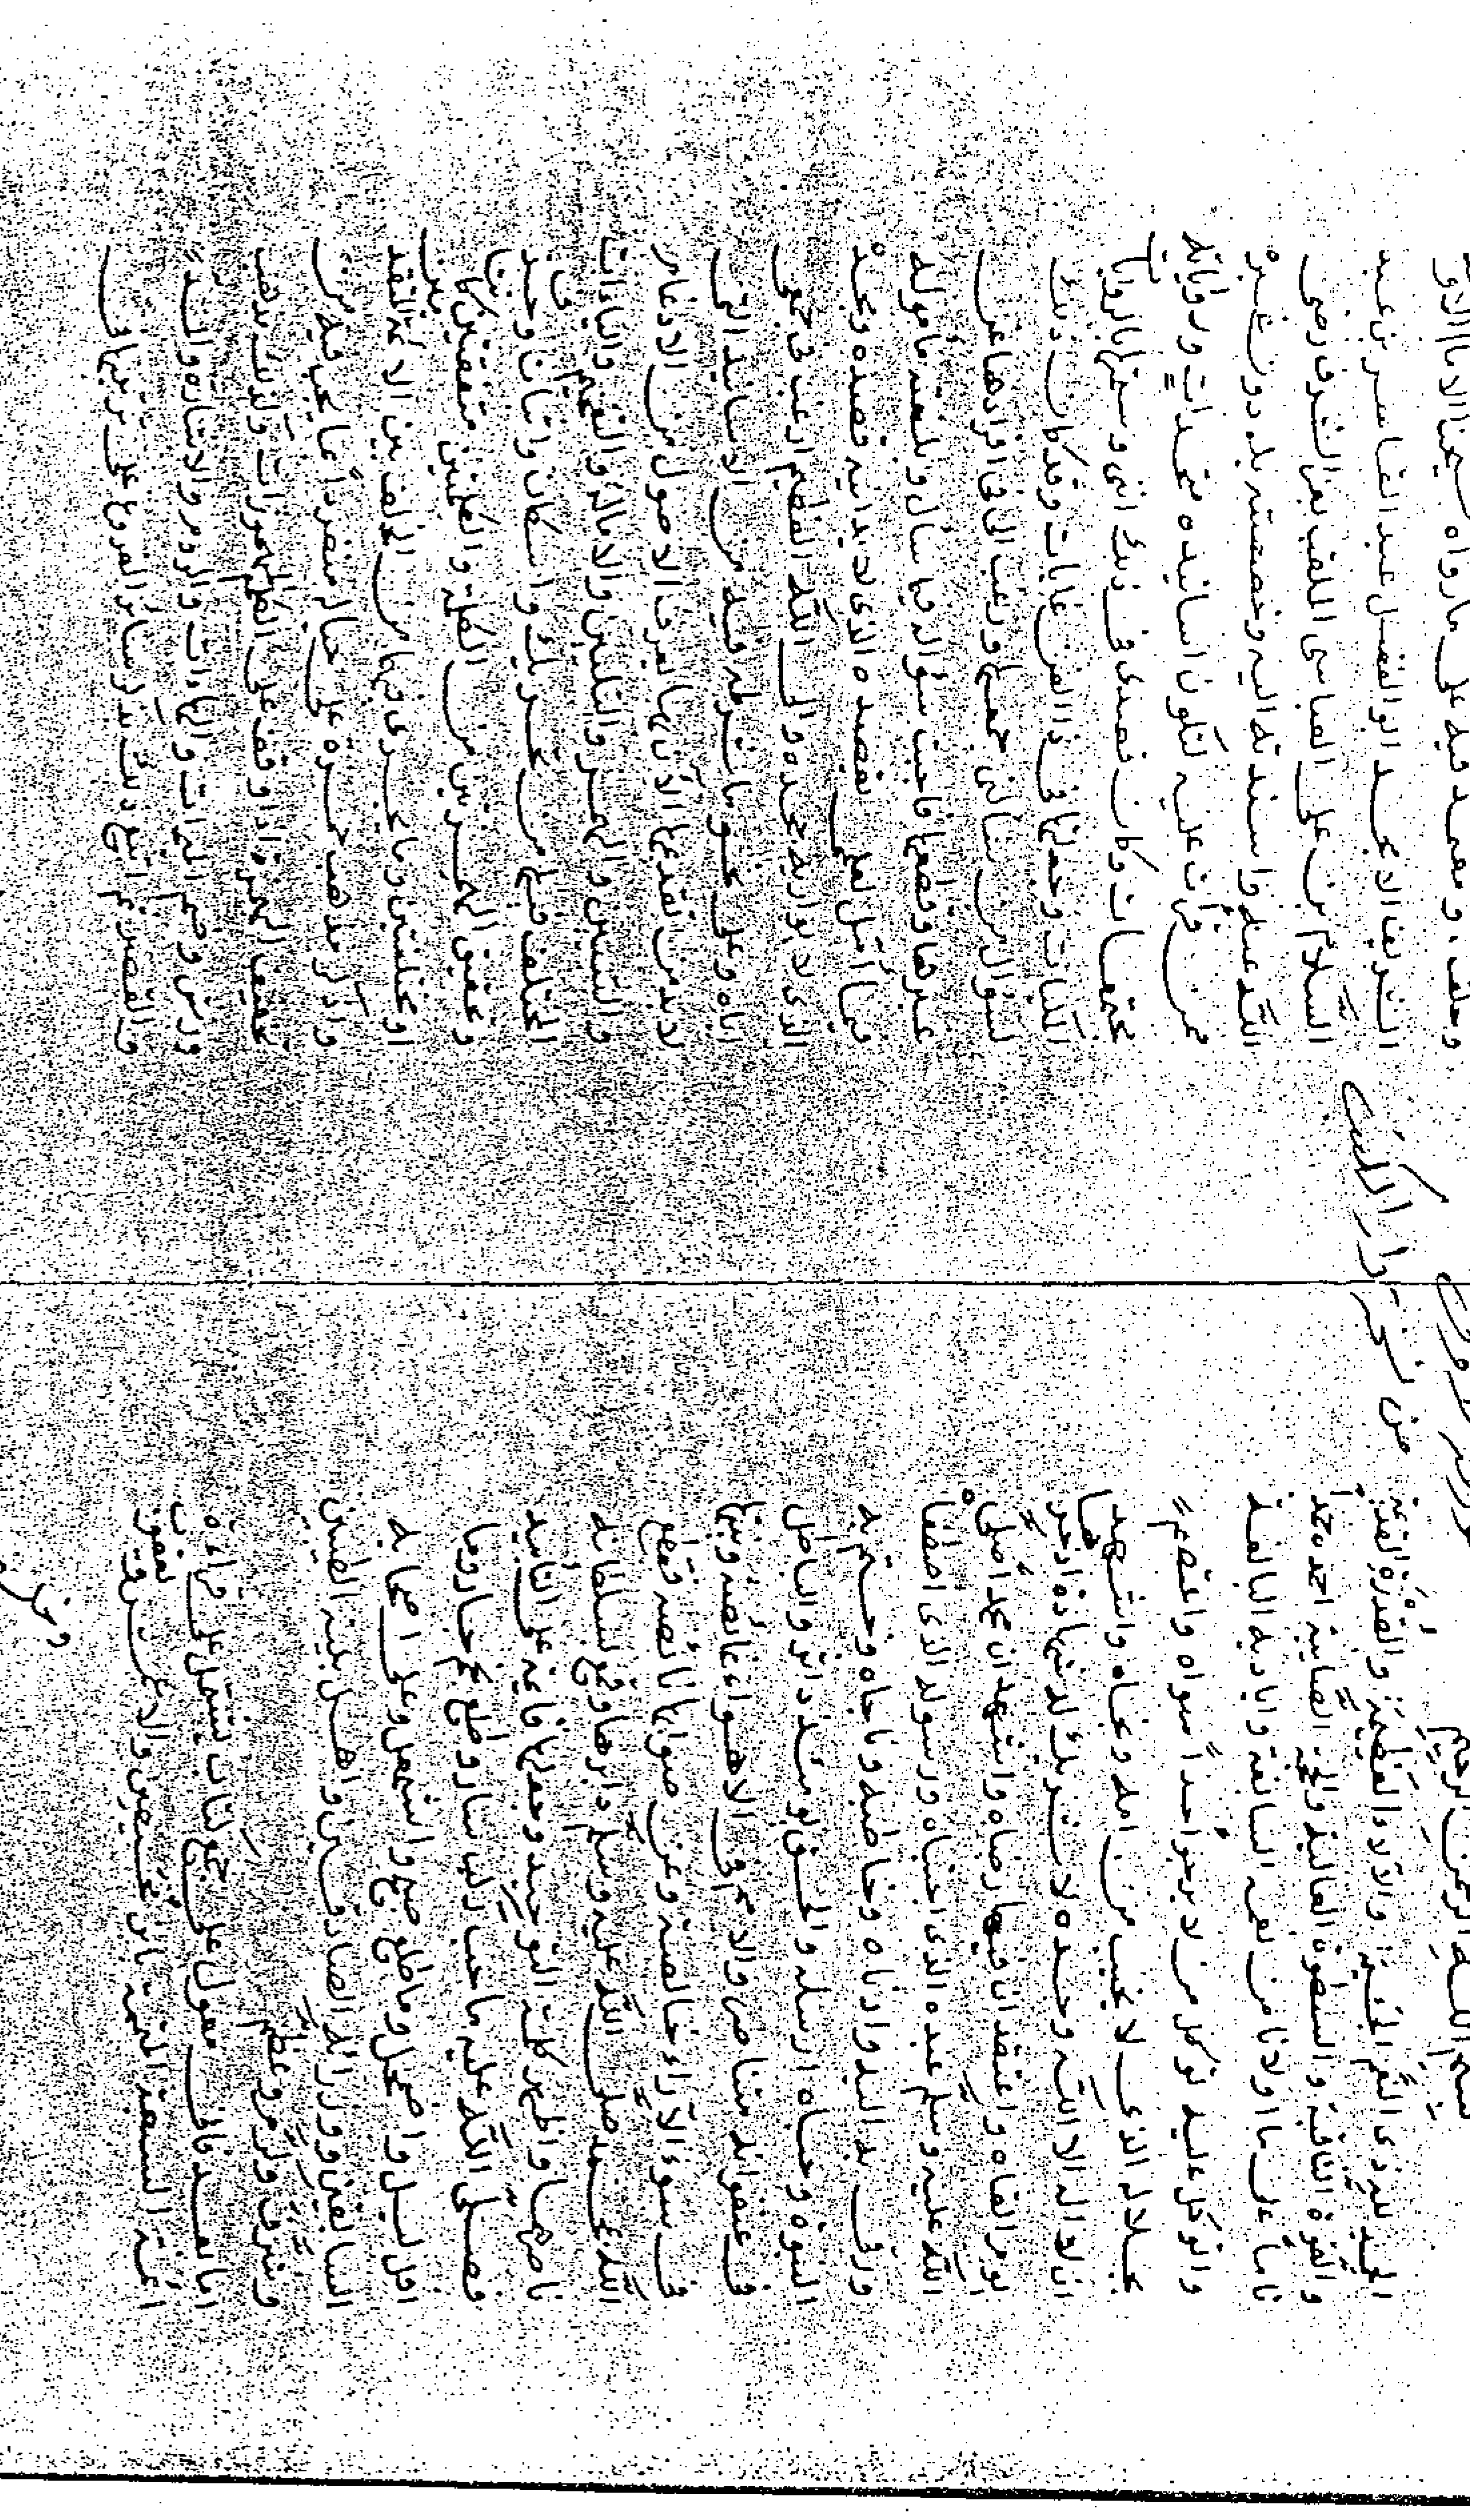 بسم الله الرحمن الرحيم
الحمد لله ذى النعم الجسيمة والآلاء العظيمة والقدرة القديمة
والقوة الثاقبة والسطوة الغالبة والحجة الصايبة احمده حمداً
على ما اولانا من نعمه السابغة واياديه البالغة
واتوكل عليه توكل من لا يرجو احداً سواه واعتصم
الذى لا يخيب من امله ورجاه واشهد
ان لا اله الا الله وحده لا شريك له شهادة ادخرها
ليوم القاه واعتقد ان فيها رضاه واشهد ان محمداً صلى
الله عليه وسلم عبده الذى اجتباه ورسوله الذى اصطفاه
وادناه وخاطبه وناجاه وختم به
النبوة وحباه ارسله والحق يومئذ داثر والباطل
فى عنفوانه متناصر والامم فى الاهواء غائصة
فى سوء الآراء خالصة وعن صوابها ناكصة فقطع
الله بمحمد صلى الله عليه وسلم دابرها وقمع بسلطانه
واظهر كلمة التوحيد وجعلها باقية على التأبيد
فصلى الله عليه ما عقب ليلا نهار وطلع نجم وغار وما
افل ليل واضمحل وما طلع صبح واستهل وعلى اصحابه
السابقين ووزرائه الصادقين واهل بيته الطيبين
وشرف وكرم وعظم
اما بعد فانى معول على جمع كتاب يشتمل على قراءة
ائمة السبعة المتممة بابن محيصن والاعمش ويعقوب
وخلف
من
دار الكتب
وخلف ومعتمد فيه على ما رواه شيخنا الامام الاوحد
الشريف الامجد ابو الفضل عبد القاهر بن عبد
السلام بن على العباسى الملقب بعز الشرف رضى
الله عنه واسندته اليه وخصصته به دون غيره
ممن قرأت عليه لتكون اسانيده متحدات ورواياته
مجتمعات وكان قصدى فى ذلك اننى وسمتها بالروايات
وجعلتها فى ذا الفن غايات وقد كان ذلك
لسؤال من سألنى جمعها ورغب الى فى افرادها عن
غيرها وقطعها فاجبت سؤاله فيما سأل وبلغته مأموله
فيما أمّل لعلمى بقصده الذى لا يدانيه قصده ومجده
الذى لا يوازيه مجده والى الله العظيم ارغب فى جمعى
اياه وعلى نحو ما شرطه فيه من الاسانيد التى
لا بد من تقدمها لانها تعرف الاصول من الادغام
والتبيين والهمز والتليين والامالة والتفخيم والياءات
المختلف فيها من تحريك واسكان واثبات وحذف
وتحقيق الهمزتين من الكلمة والكلمتين متفقتين كانتا
او مختلفتين وما يجرى فيهما من الخلف بين الائمة
واذكر مذهب حمزة على حاله منفردا عما يجب فيه من
تخفيف الهمزة اذا وقف على المهموزات وكذلك مذهب
ورش وضم الميمات والهاءات والروم والاشارة والمد
والقصر ثم اتبع ذلك بذكر سائر الفروع على ترتيبها فى